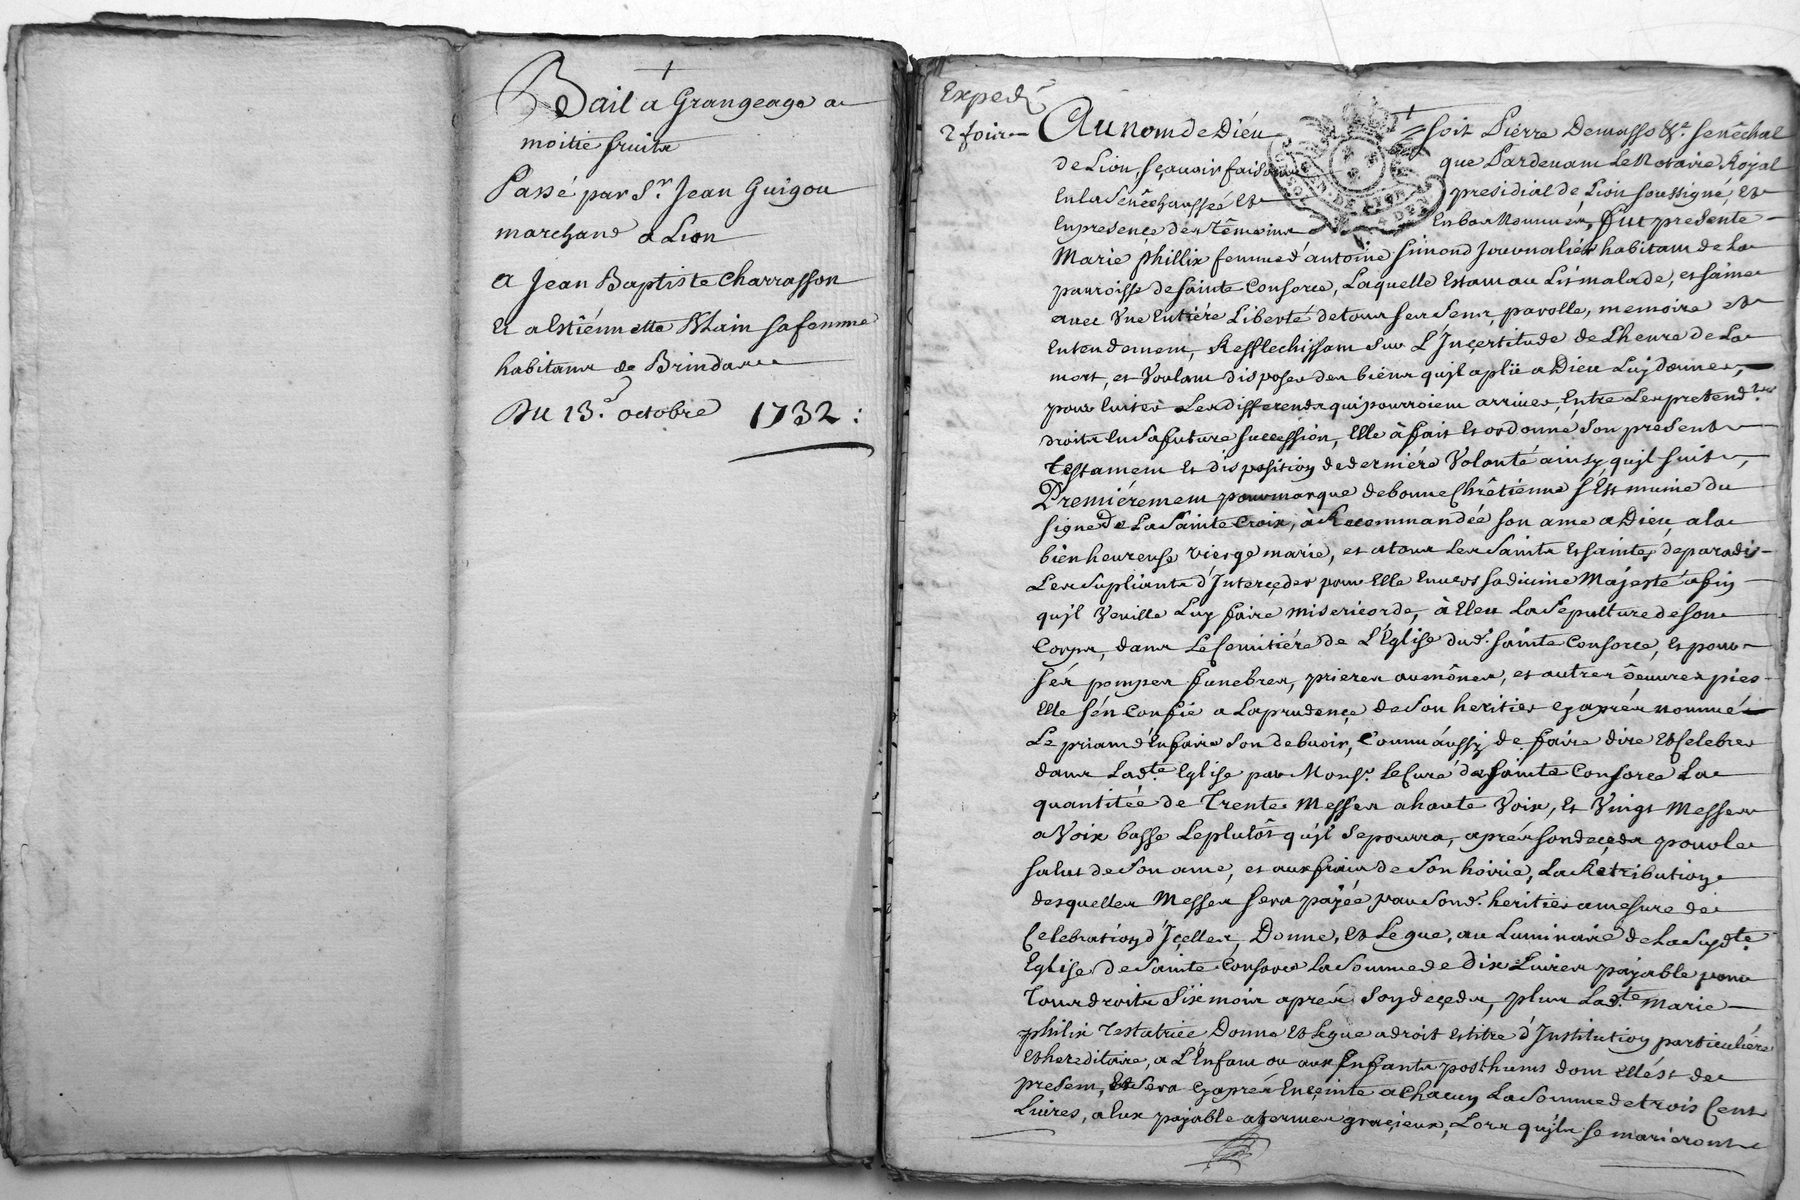 Bail a Grangeage a
moitié fruits
Passé par Sr. Jean Guigou
marchand a Lion
a Jean Baptiste Charrasson
Et a Estiennette Blain sa femme
habitans de Brindas
Du 13e. octobre 1732 :
Expedié
2 fois
Au nom de Dieu soit Pierre Demasso &a. senêchal
de Lion, sçavoir faisons que Pardevant Le Notaire Royal
En la Senêchaussée Et presidial de Lion soussigné, et
En presence des têmoins En bas Nommés, fut presente
Marie phillix femme d'antoine Simond Journalier habitant de La
parroisse de Sainte Consorce, Laquelle Estant au Lit malade, et saine
avec Une Entiére Liberté de tous ses sens, parolle, memoire et
Entendement, Reflechissant sur L'Inçertitude de L'heure de La
mort, et Voulant disposer des biens qu'il a plû a Dieu Luy donner,
pour Eviter Les differends qui pourroient arriver, Entre Les pretend.
droits En sa future succession, Elle à fait Et ordonné son present
Testament Et disposition de derniére Volonté ainsy qu'il suit,
Premiérement pour marque de bonne Chrêtienne s'Est munie du
signe de La Sainte Croix, à Recommandée son ame a Dieu, a la
bien heureuse vierge marie, et a tous Les Saints Et saintes de paradis
Les supliants d'Interçeder pour Elle Envers sa divine Majesté afin
qu'il Veuille Luy faire misericorde, à Eleu La Sepulture de son
Corps, dans Le Cemitiére de L'Eglise dud. Sainte Consorce, Et pour
sés pompes funebres, prieres aumônes, et autres oeuvres pies
Elle s'én Confie a La prudençe de son heritier Cy aprés nommé
Le priant d'En faire son debvoir, Comme aussy de faire dire Et Celebrer
dans Lad.te Eglise par Mons.r Le Curé de Sainte Consorce La
quantitée de Trente Messes a haute Voix, Et Vingt Messes
a Voix basse Le plutôt qu'il se pourra, aprés son deçeds pour le
salut de son ame, et aux frais de son hoirie, La Retribution
desquelles Messes sera payée par sond. heritier a mesure de
Celebration d'Içelles, Donne, Et Legue, au Luminaire de La susd.te
Eglise de Sainte Consorce La somme de Dix Livres payable pour
Tous droits Six mois aprés son deçeds, plus Lad.te Marie
philix Testatrice Donne Et Legue a droit Et titre d'Institution particuliére
Et hereditaire, a L'Enfant ou aux Enfants posthums dont Elle est de
present, Et sera Cy aprés Enceinte a Chacun La somme de trois Cent
Livres, a Eux payable a termes graçieux, Lors qu'ils se marieront